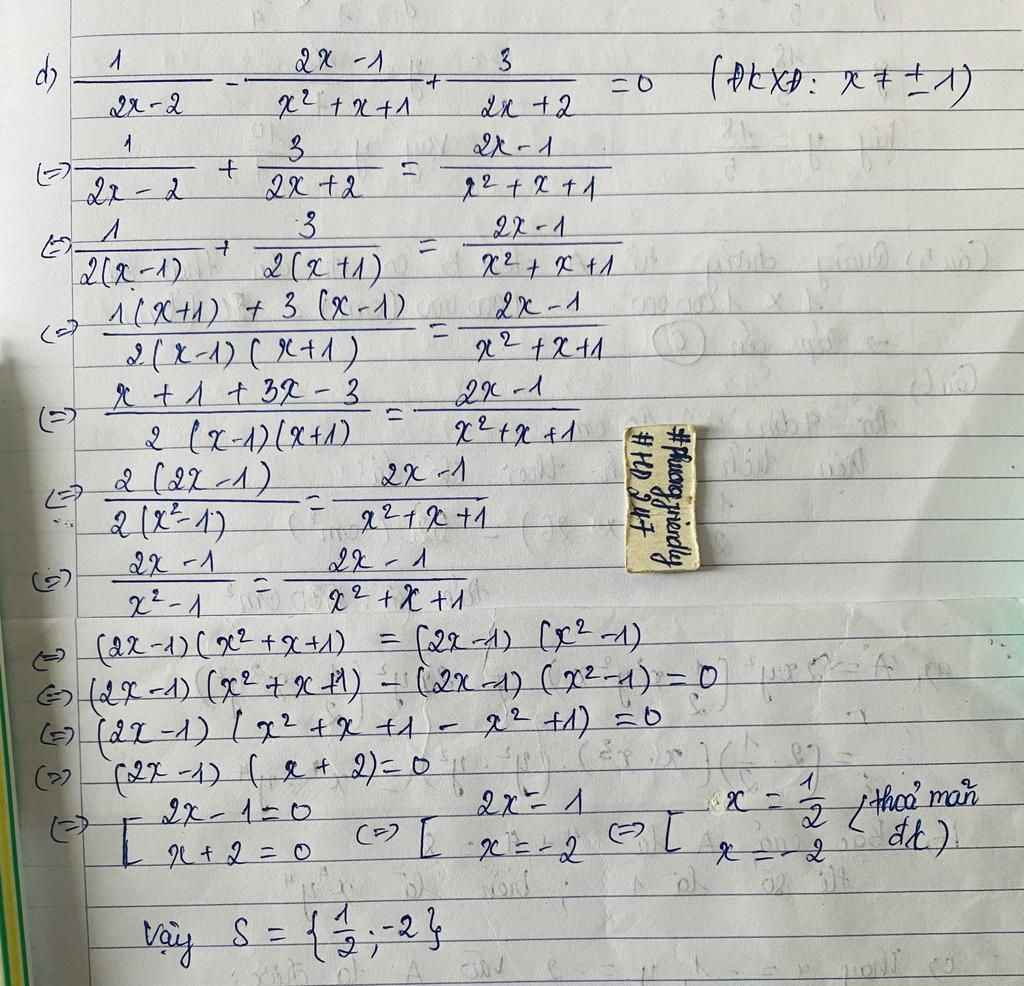 d) 1/(2x-2) - (2x-1)/(x²+x+1) + 3/(2x+2) = 0 (ĐKXĐ: x ≠ ±1)
(=) 1/(2x-2) + 3/(2x+2) = (2x-1)/(x²+x+1)
(=) 1/(2(x-1)) + 3/(2(x+1)) = (2x-1)/(x²+x+1)
(=) (1(x+1) + 3(x-1))/(2(x-1)(x+1)) = (2x-1)/(x²+x+1)
(=) (x+1+3x-3)/(2(x-1)(x+1)) = (2x-1)/(x²+x+1)
(=) (2(2x-1))/(2(x²-1)) = (2x-1)/(x²+x+1)
(=) (2x-1)/(x²-1) = (2x-1)/(x²+x+1)
(=) (2x-1)(x²+x+1) = (2x-1)(x²-1)
(=) (2x-1)(x²+x+1) - (2x-1)(x²-1) = 0
(=) (2x-1)(x²+x+1-x²+1) = 0
(=) (2x-1)(x+2) = 0
(=) [ 2x-1=0 (=) [ 2x=1 (=) [ x = 1/2 (thoả mãn
x+2=0 x=-2 x=-2 đk)
Vậy S = {1/2; -2}
#phuongfriendly
#HD247